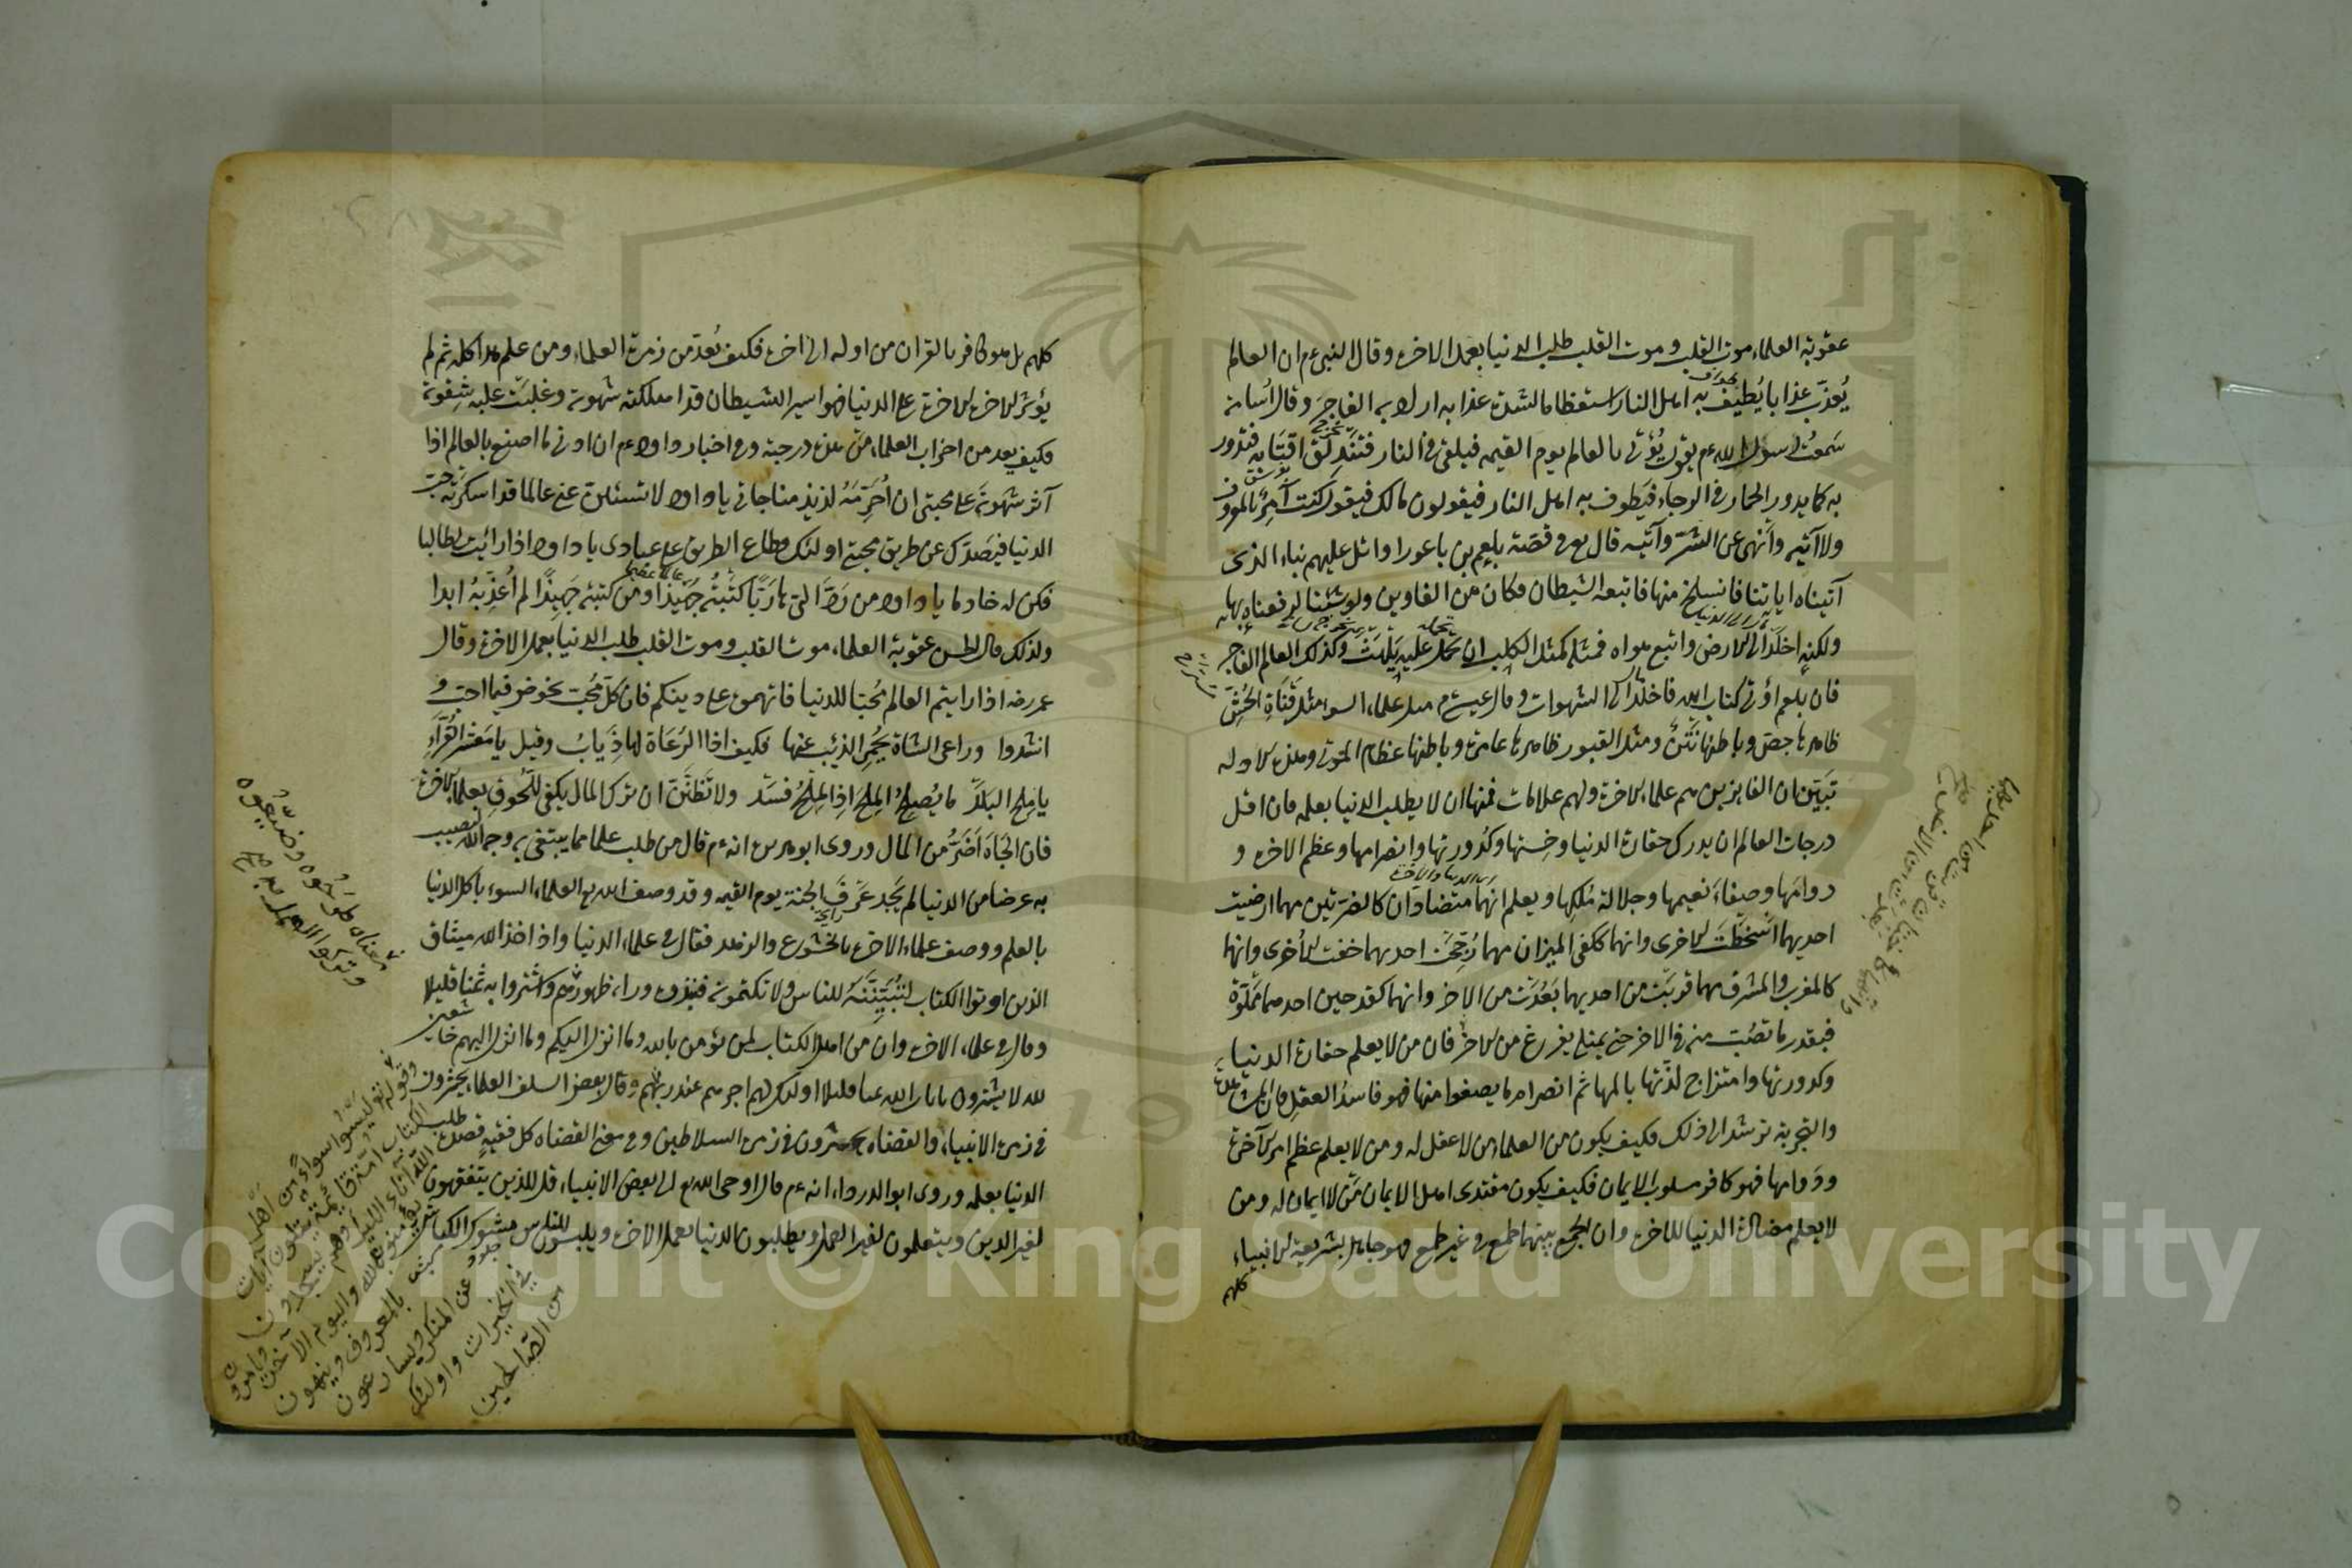 عقوبة العلماء موت القلب وموت القلب طلب الدنيا بعمل الاخرة وقال النبي ءم ان العالم
يُعذّب عذابا يُطيف به اهل النار استعظاما لشدة عذابه اراد به الفاجر وقال اُسامة
سَمعتُ رسول الله ءم يقول يُؤتى بالعالم يوم القيمة فيلقى في النار فتندلق اقتابه فتدور
به كما يدور الحمار في الرحاء فيَطوف به اهل النار فيقولون مالك فيقول كنت آمِرُ بالمعروف
ولا آتيه وأنهى عن الشرّ وآتيه قال تع في قصّة بلعم بن باعورا واتل عليهم نباء الذى
آتيناه اياتنا فانسلخ منها فاتبعه الشيطان فكان من الغاوين ولو شئنا لرفعناه بها
ولكنه اخلدَ الى الارض واتبع هواه فمثله كمثل الكلب ان تحمل عليه يَلْهَثْ وكذلك العالم الفاجر
فان بلعم اوتى كتاب الله فاخلد الى الشهوات وقال عيسى م مثل علماء السوء مثل قَناةِ الحُشِّ
ظاهرها جصّ وباطنها نَتْنٌ ومثل القبور ظاهرها عامرة وباطنها عظام الموتى وهذه الادلة
تبَيّن ان الفايزين هم علماء الاخرة ولهم علامات فمنها ان لا يطلب الدنيا بعلمه فان اقل
درجات العالم ان يدرك حقارة الدنيا وخِستها وكُدورتها وانصرامها وعظم الاخرة و
دوامَها وصفاءَ نعيمها وجلالة مُلكِها ويعلم انهما متضادّان كالضرتين مهما ارضيت
احديهما اَسْخَطْتَ الاخرى وانهما ككفتى الميزان مهما رُجّحَتْ احديهما خفت الاُخرى وانهما
كالمغرب والمشرق مهما قربَت من احديهما بَعُدَتْ من الاخر وانهما كقدحين احدهما مملوّة
فبقدر ما تصُبّ منه في الاخر حتى يمتلى يفرغ من الاخر فان من لا يعلم حقارة الدنيا
وكدورتها وامتزاج لذّتها بالمها ثم انصرام ما يصفوا منها فهو فاسدُ العقلِ فان المشاهدة
والتجربة ترشد الى ذلك فكيف يكون من العلماء من لا عقل له ومن لا يعلم عظم امر الآخرة
ودَوامها فهو كافر مسلوب الايمان فكيف يكون مقتدى اهل الايمان مَن لا ايمان له ومن
لا يعلم مضادة الدنيا للاخرة وان الجمع بينهما طمع في غير طمع فهو جاهل بشريعة الانبياء
كلهم
كلهم بل هو كافر بالقران من اوله الى اخره فكيف يُعدّ من زمرة العلماء ومن علم هذا كله ثم لم
يؤثر الاخرة على الدنيا فهو اسير الشيطان قد اهلكته شهوته وغلبَت عليه شِقوته
فكيف يعد من احزاب العلماء مَن هذه درجته وفي اخبار داود ءم ان ادنى ما اصنع بالعالم اذا
آثر شهوته على محبتى ان اُحَرِّمَهُ لذيذ مناجاتى يا داود لا تسئلن عنى عالما قد اسكرته حبّ
الدنيا فيَصدّك عن طريق محبتى اولئك قطاع الطريق على عبادى يا داود اذا رائيت لى طالبا
فكن له خادما يا داود من رَدَّ الىّ هاربًا كتبتُه جَهبَذا ومن كتبته جَهبِذًا لم اُعَذّبهُ ابدا
ولذلك قال الحسن عقوبة العلماء موت القلب وموت القلب طلب الدنيا بعمل الاخرة وقال
عمر رضه اذا رايتم العالم مُحبّا للدنيا فاتهموه على دينكم فان كلّ مُحبّ يخوض فيما احبّ و
انشدوا وراعى الشاة يَحْمِى الذئب عنها فكيف اذا الرُعَاة لها ذِيَابُ وقيل يا مَعْشر القُرّاءِ
يا مِلحَ البلَدْ ما يُصلِحُ المِلحَ اِذا المِلْحُ فسَد ولا تَظنَّنّ ان ترك المال يكفى للّحوق بعلماء الاخرة
فان الجَاهَ اَضَرُّ من المال وروى ابو هريرة انه ءم قال من طلب علما مما يبتغى به وجه الله ليصيب
به عرضا من الدنيا لم يَجد عَرْفَ الجنة يوم القيمة وقد وصف الله تع العلماء السوء باكل الدنيا
بالعلم ووصف علماء الاخرة بالخشوع والزهد فقال في علماء الدنيا واذ اخذ الله ميثاق
الذين اوتوا الكتاب لتُبيّنُنّه للناس ولا تكتمونه فنبذوه وراء ظهورهم واشتروا به ثمنا قليلا
وقال في علماء الاخرة وان من اهل الكتاب لمن يؤمن بالله وما انزل اليكم وما انزل اليهم خاشعين
لله لا يشترون بايات الله ثمنا قليلا اولئك لهم اجرهم عند ربهم وقال بعض السلف العلماء يحشرون
في زمرة الانبياء والقضاة يحشرون في زمرة السلاطين وفي معنى القضاة كل فقيه قصده طلب
الدنيا بعلمه وروى ابو الدرداء انه ءم قال اوحى الله تع الى بعض الانبياء قل للذين يتفقهون
لغير الدين ويتعلمون لغير العمل ويطلبون الدنيا بعمل الاخرة ويلبسون للناس مشوك الكباش
معناه طرحوه وضيّعوه
وتركوا العمل به
وقوله تع ليسوا سواءً من اهل
الكتاب امّة قائمة يتلون آيات
الله آناء الليل وهم يسجدون
يؤمنون بالله واليوم الآخر ويامرون
بالمعروف وينهون
عن المنكر ويسارعون
في الخيرات واولئك
من الصّالحين